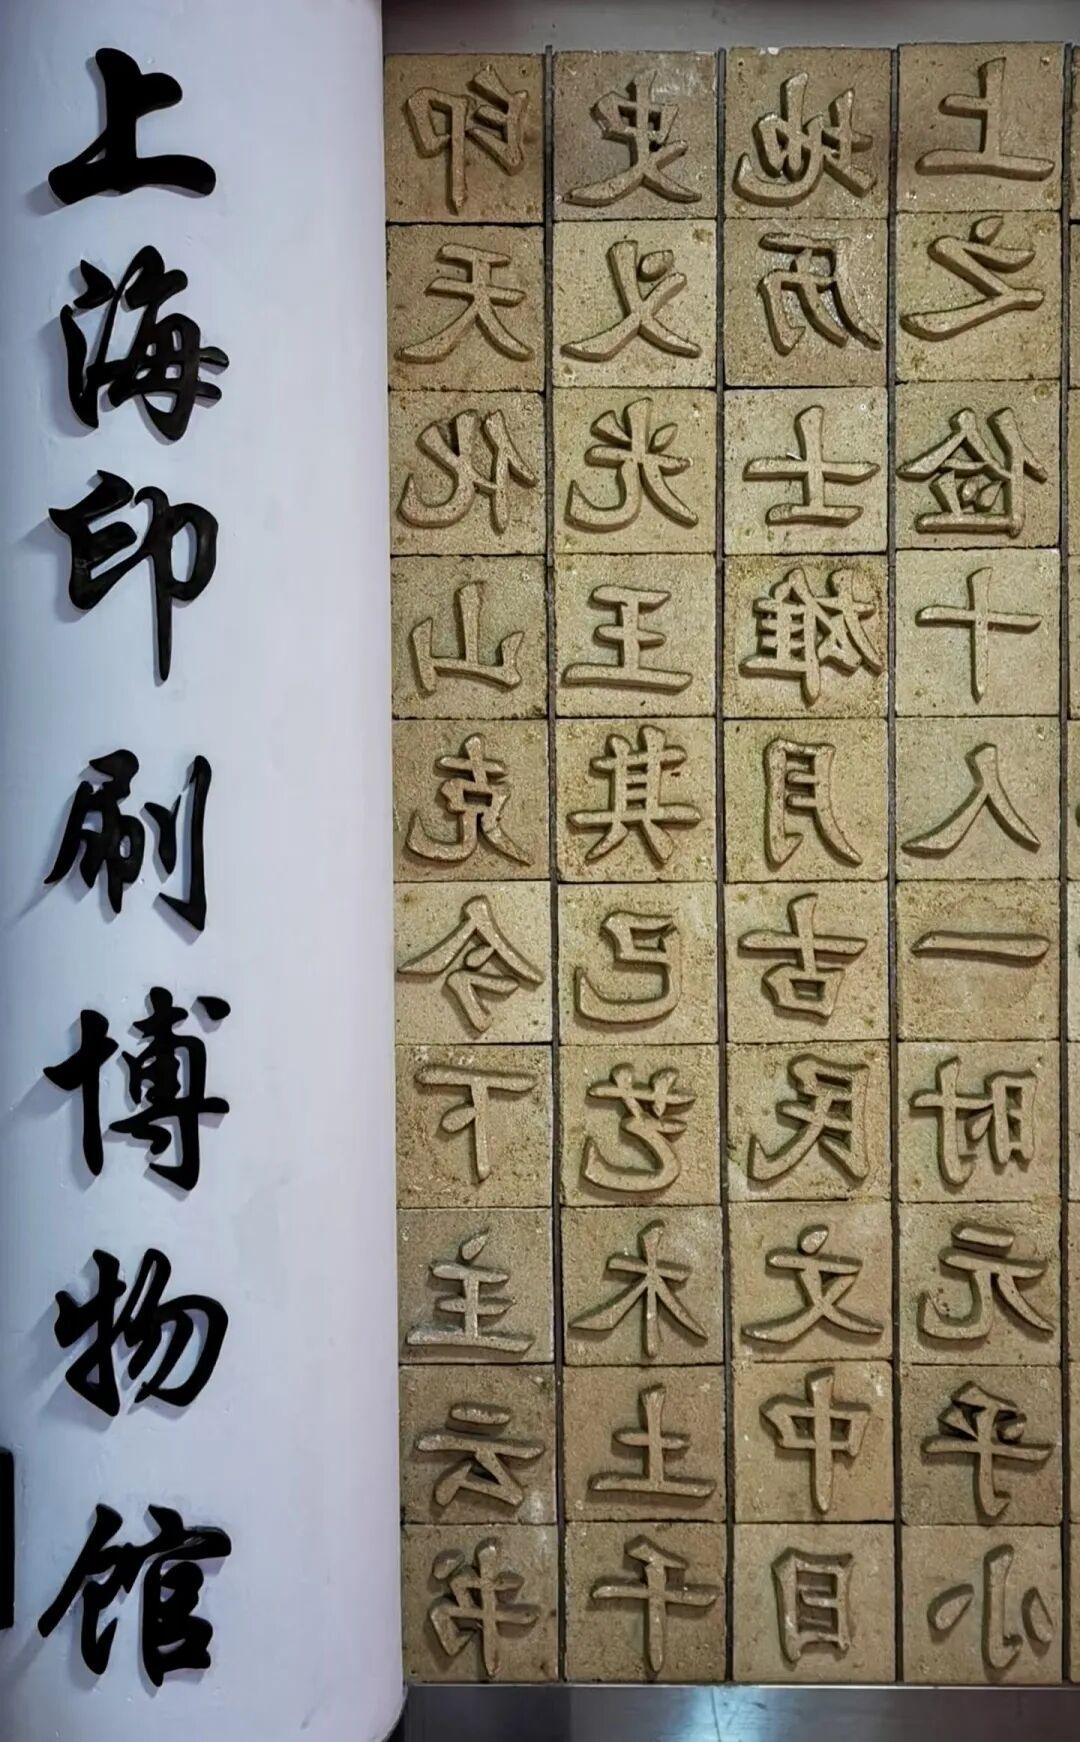 上海印刷博物馆
上之俭十人一时元乎小
地历士雄月古民文中目
史义光王其已艺木土千
印天化山克今下主云书